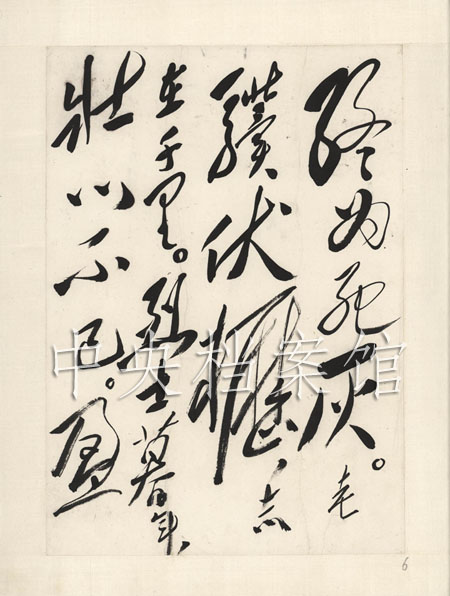 终为死灰。老
骥伏枥、志
在千里。烈士暮年、
壮心不已。盈
中央档案馆
6